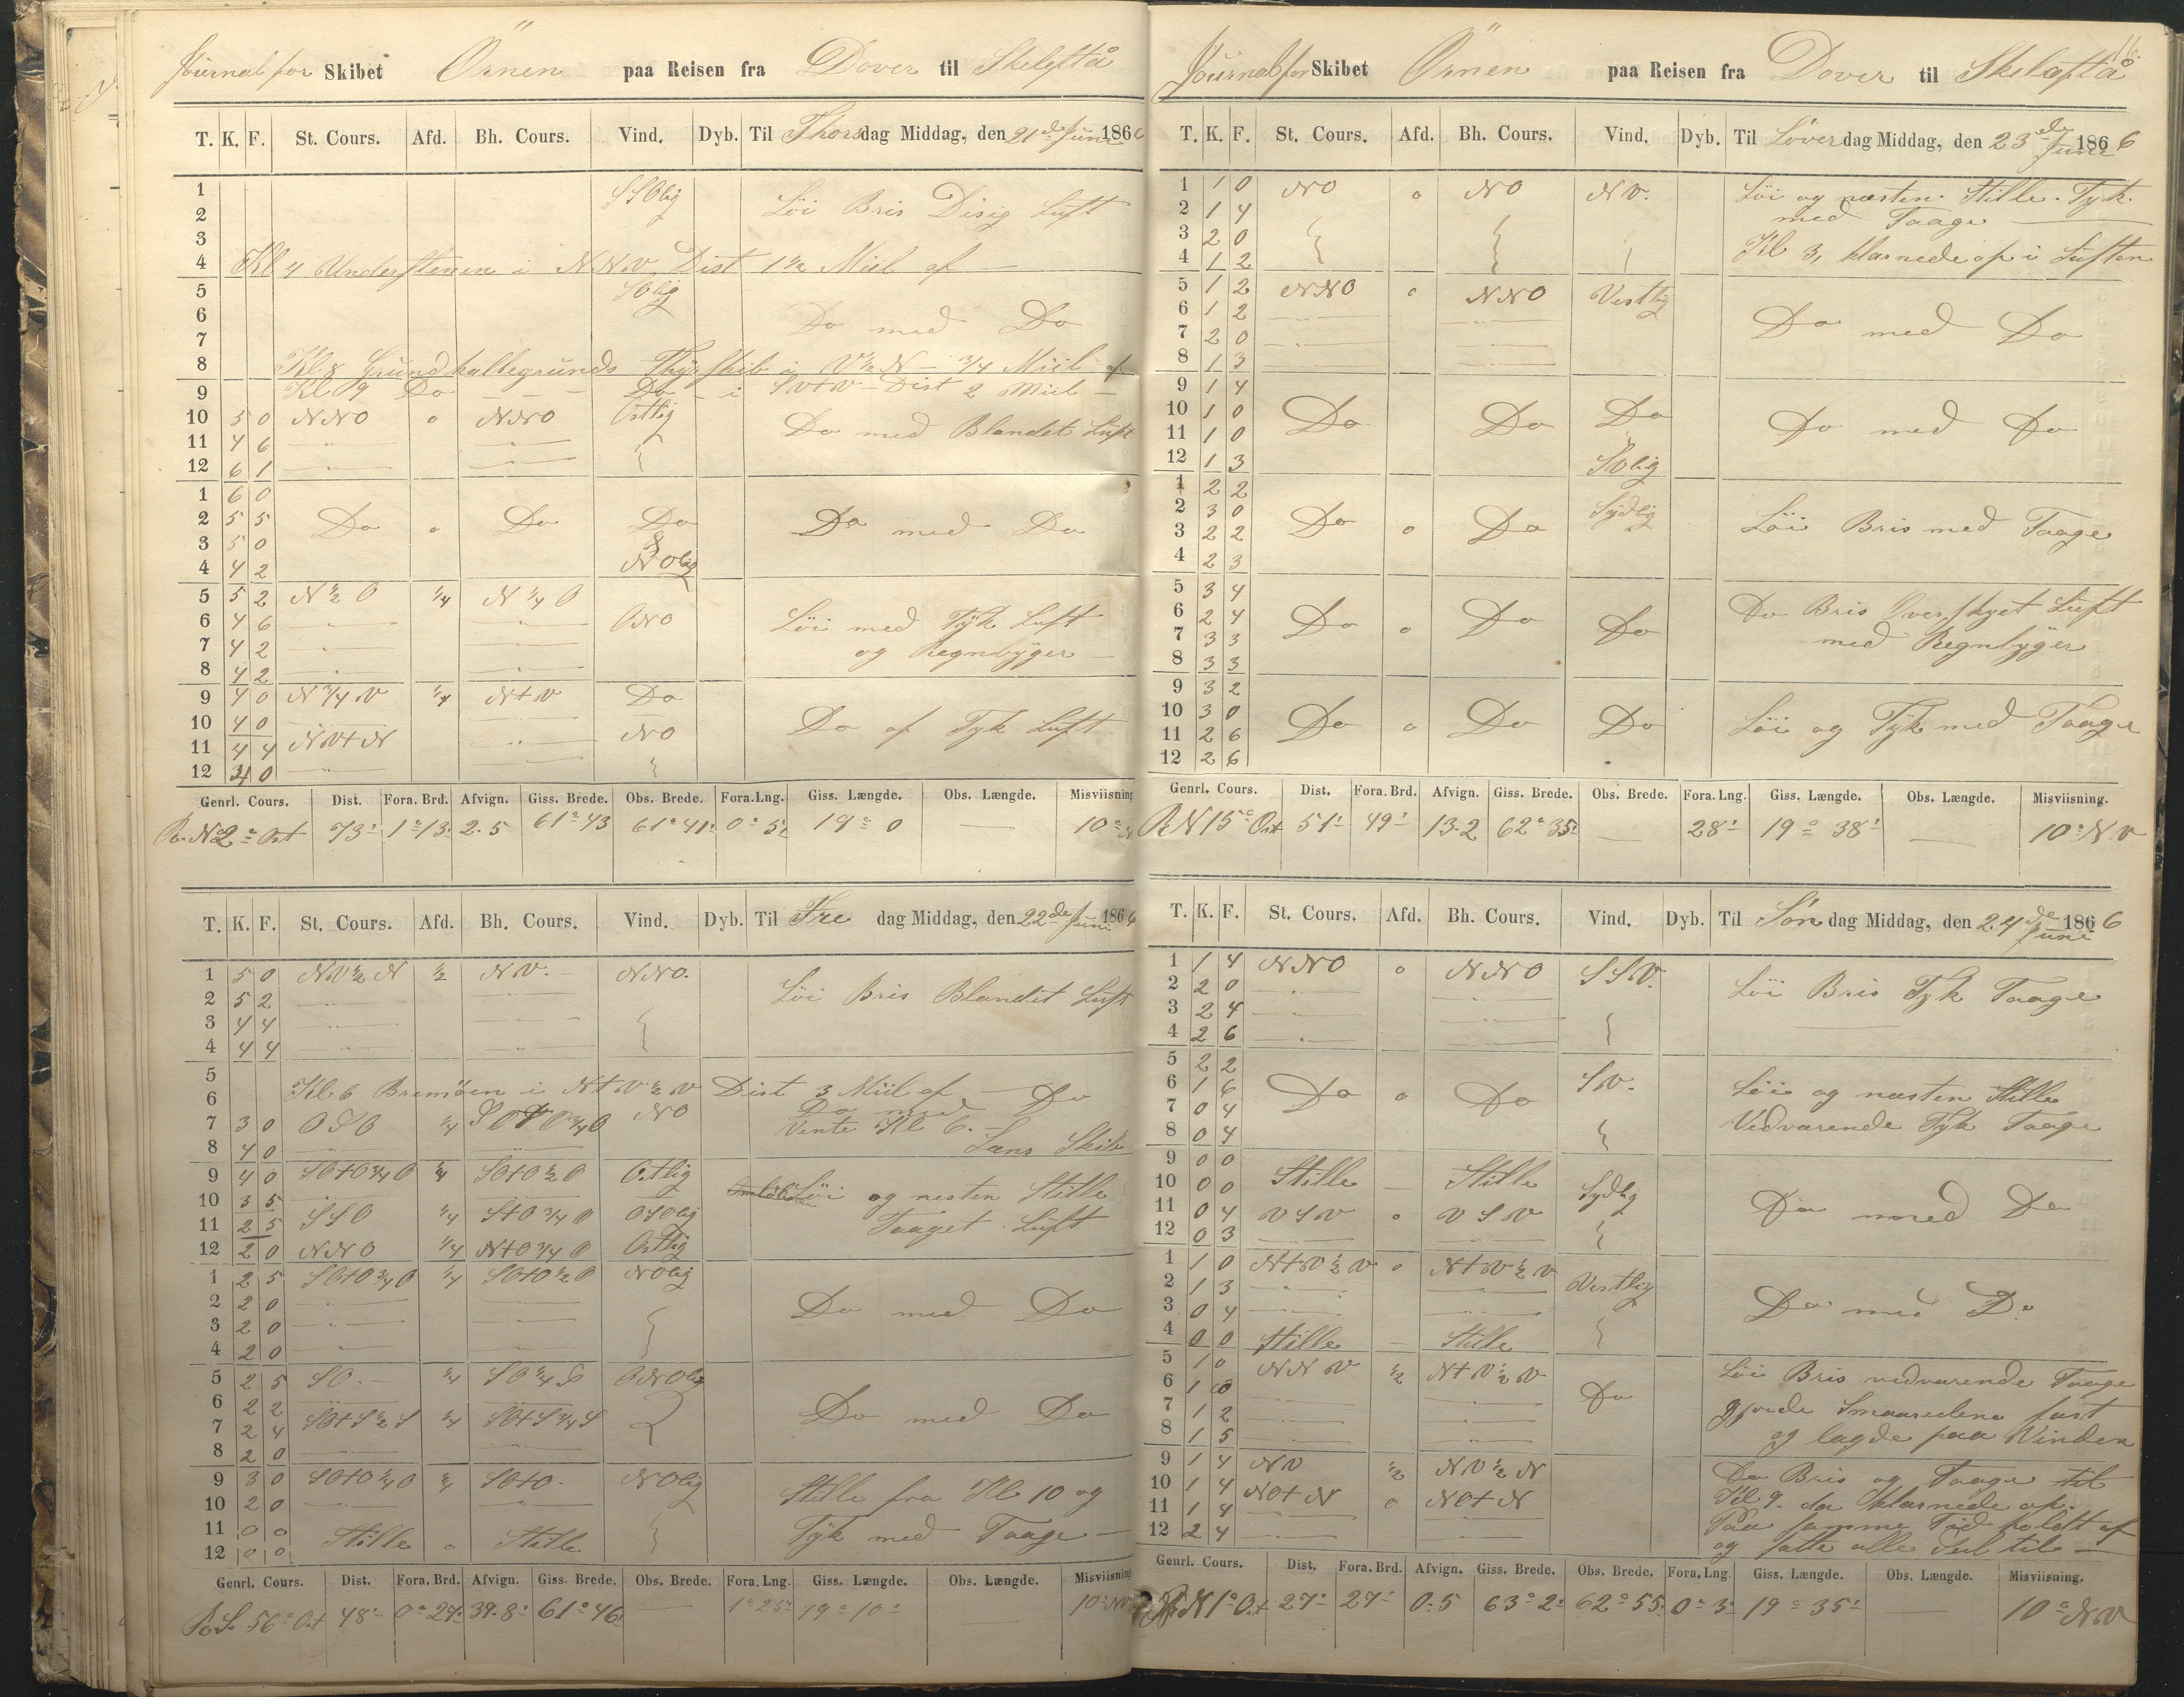 Journal for Skibet Örnen paa Reisen fra Dover til Skelefta
T. K. F. St. Cours. Afd. Bh. Cours. Vind. Dyb. Til Thorsdag Middag, den 21de Juni 1866
1 SSOlig Löi Bris Disig Luft
2
3
4 Kl 4 Understenen i NNV Dist 1½ Miil af
5 SOlig
6 Do med Do
7
8 Kl. 8 Grundkallegrunds Fhyrskib i V½N - 3/4 Miil af
9 Kl 9 Do - - - Do - i SVtV Dist 2 Miil
10 5 0 NNO 0 NNO Ostlig Do med Blandet Luft
11 4 6
12 6 1
1 6 0
2 5 5 Do 0 Do Do Do med Do
3 5 0
4 4 2 NOlig
5 5 2 N½O ¼ N¼O
6 4 6 ONO Löi med Tÿk Luft
7 4 2 og Regnbÿger
8 4 2
9 4 0 N¾V ¼ NtV Do
10 4 0 Do af Tyk Luft
11 4 4 NVtN NO
12 4 0
Genrl. Cours. Dist. Fora. Brd. Afvign. Giss. Brede. Obs. Brede. Fora. Lng. Giss. Længde. Obs. Længde. Misviisning
R. N 2° Ost 73' 1° 13' 2.5 61° 43 61° 41' 0° 5' 18° 0 — 10° N
T. K. F. St. Cours. Afd. Bh. Cours. Vind. Dyb. Til Fredag Middag, den 22de Juni 1866
1 5 0 NV½N ½ NV. NNO. Löi Bris Blandet Luft
2 5 2
3 4 4
4 4 4
5
6 Kl. 6 Bremöen i NtV½V Dist 3 Miil af Do
7 3 0 OSO ¼ NO Do med
Vente Kl 6.
8 4 0 Lans Skib
9 4 0 SOtO¾O ¼ SOtO½O Ostlig Löi og nesten Stille
10 3 5
11 2 5 SSO ¼ StO¾O OSOlig Taaget Luft
12 2 0 NNO ¼ NtO¾O Ostlig
1 2 5 SOtO¾O ¼ SOtO½O NOlig
2 2 0 Do med Do
3 2 0
4 2 0
5 2 5 SO. ¼ SO¼S ONOlig
6 2 2 Do med Do
7 2 4 SOtS½S ¼ SOtS¾S
8 2 0
9 3 0 SOtO¼O ¼ SOtO. NOlig Stille fra Kl 10 og
10 2 0
11 0 0 Stille 0 Stille Tÿk med Taage
12 0 0
Genrl. Cours. Dist. Fora. Brd. Afvign. Giss. Brede. Obs. Brede. Fora. Lng. Giss. Længde. Obs. Længde. Misviisning
R. S. 56° Ost 48' 0° 27' 39.8' 61° 46' — 1° 25' 19° 10' — 10° NV
Journal for Skibet Örnen paa Reisen fra Dover til Skelefta
T. K. F. St. Cours. Afd. Bh. Cours. Vind. Dyb. Til Löverdag Middag, den 23de Juni 1866
1 1 0 NO 0 NO NV. Löi og næsten Stille. Tyk
2 1 4 med Taage
3 2 0
4 1 2 Kl 3, klarnede op i Luften
5 1 2 NNO 0 NNO Vestlig
6 1 2 Do med Do
7 2 0
8 1 3
9 1 4
10 1 0 Do Do Do Do med Do
11 1 0
12 1 3 SOlig
1 2 2
2 3 0 Do 0 Do Sydlig Löi Bris med Taage
3 2 2
4 2 3
5 3 4 Do Bris Overskyet Luft
6 2 4 Do 0 Do Do
7 3 3 med Regnbÿger
8 3 3
9 3 2
10 3 0 Do 0 Do Do Löi og Tÿk med Taage
11 2 6
12 2 6
Genrl. Cours. Dist. Fora. Brd. Afvign. Giss. Brede. Obs. Brede. Fora. Lng. Giss. Længde. Obs. Længde. Misviisning.
R. N 15° Ost 51' 49' 13.2 62° 35' — 28' 19° 38' — 10° NV
T. K. F. St. Cours. Afd. Bh. Cours. Vind. Dyb. Til Söndag Middag, den 24de Juni 1866
1 1 4 NNO 0 NNO SSV. Löi Bris Tyk Taage
2 2 0
3 2 4
4 2 6
5 2 2 SV.
6 1 6 Do 0 Do Löi og næsten Stille
7 0 4 Vedvarende Tyk Taage
8 0 4
9 0 0 Stille — Stille Sydlig
10 0 0 Do med Do
11 0 4 VSV 0 VSV
12 0 3
1 1 0 NtV½V 0 NtV½V Vestlig
2 1 3 Do med Do
3 0 4
4 0 0 Stille — Stille
5 1 0 NNV ½ NtV½V Löi Bris vedvarende Taage
6 1 0 Do gjorde Smaaseilene fast
7 1 2
8 1 5 og lagde paa Vinden
9 1 4 NV ½ NV½N Do Bris og Taage til
10 1 4 NOtN 0 NOtN Kl 9. da klarnede op.
11 1 4 Paa samme Tid holdt af
12 2 4 og satte alle Seil til
Genrl. Cours. Dist. Fora. Brd. Afvign. Giss. Brede. Obs. Brede. Fora. Lng. Giss. Længde. Obs. Længde. Misviisning.
R. N 1° Ost 27' 27' 0.5 63° 2' 62° 55' 0° 3' 19° 35' — 10° NV